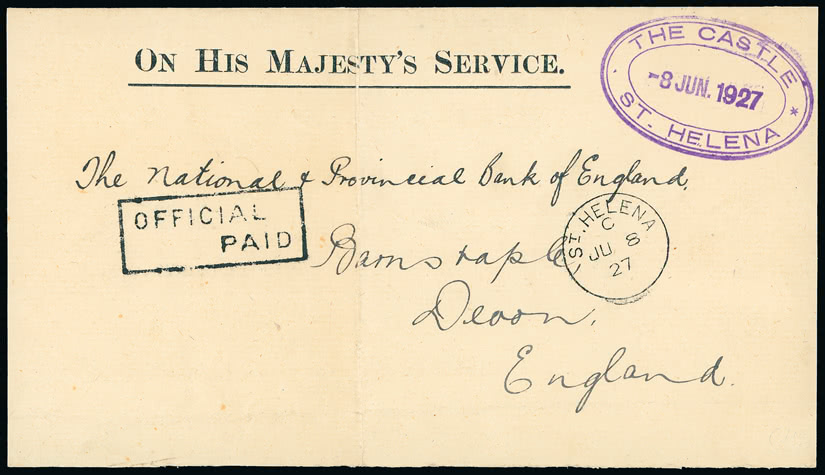 ON HIS MAJESTY'S SERVICE.
THE CASTLE
-8 JUN. 1927
* ST. HELENA
The National & Provincial Bank of England,
OFFICIAL
PAID
Barnstaple
ST. HELENA
C
JU 8
27
Devon,
England.